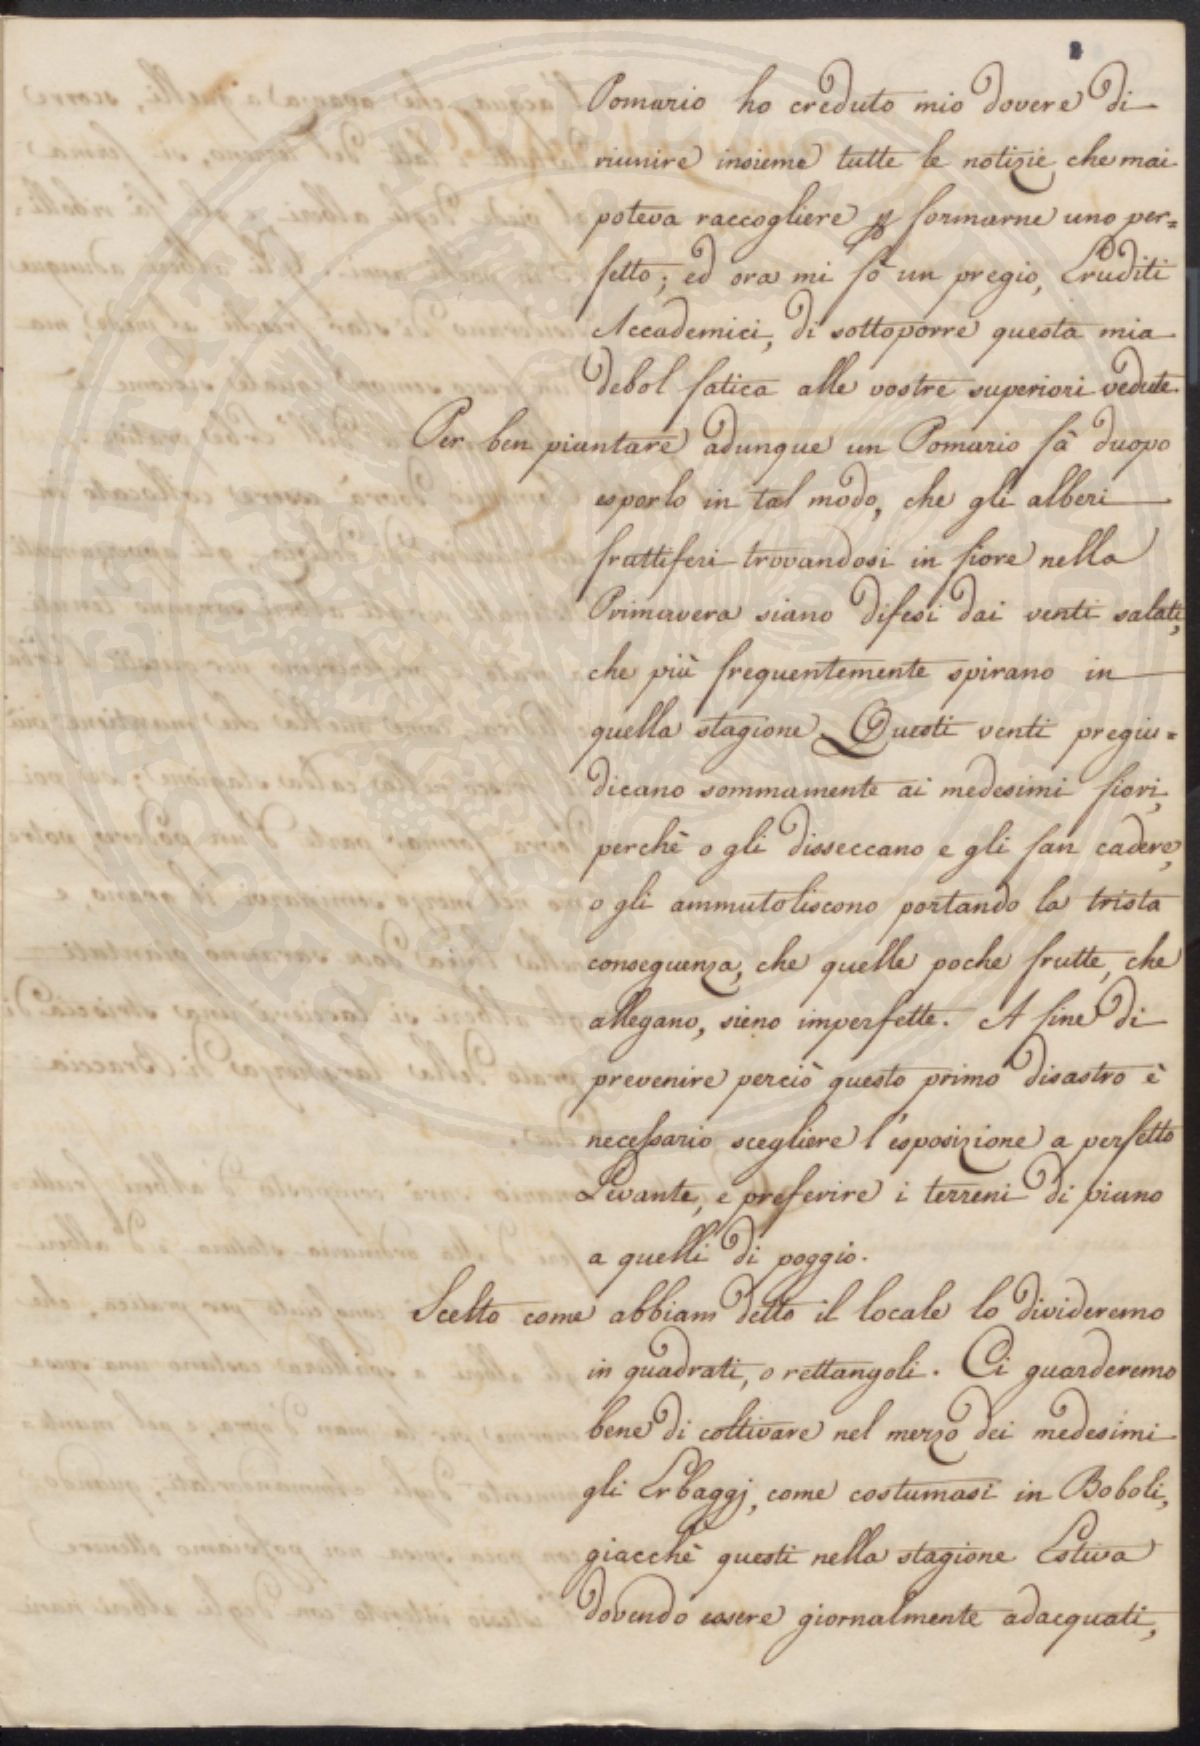 Pomario ho creduto mio dovere di
riunire insieme tutte le notizie che mai
poteva raccogliere p formarne uno per=
fetto; ed ora mi fò un pregio, Eruditi
Accademici, di sottoporre questa mia
debol fatica alle vostre superiori vedute.
Per ben piantare adunque un Pomario fà duopo
esporlo in tal modo, che gli alberi
fruttiferi trovandosi in fiore nella
Primavera siano difesi dai venti salati,
che più frequentemente spirano in
quella stagione. Questi venti pregiu=
dicano sommamente ai medesimi fiori,
perchè o gli disseccano e gli fan cadere,
o gli ammutoliscono portando la trista
conseguenza, che quelle poche frutte, che
allegano, sieno imperfette. A fine di
prevenire perciò questo primo disastro è
necessario scegliere l'esposizione a perfetto
Levante, e preferire i terreni di piano
a quelli di poggio.
Scelto come abbiam detto il locale lo divideremo
in quadrati, o rettangoli. Ci guarderemo
bene di coltivare nel mezzo dei medesimi
gli Erbaggj, come costumasi in Boboli,
giacchè questi nella stagione Estiva
dovendo essere giornalmente adacquati,